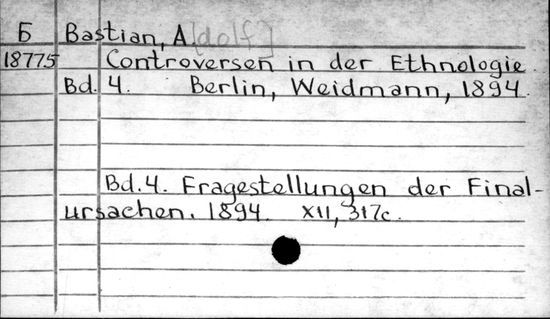 Б Bastian, A[dolf]
18775 Controversen in der Ethnologie.
Bd. 4. Berlin, Weidmann, 1894.
Bd.4. Fragestellungen der Final-
ursachen. 1894. XII, 317c.